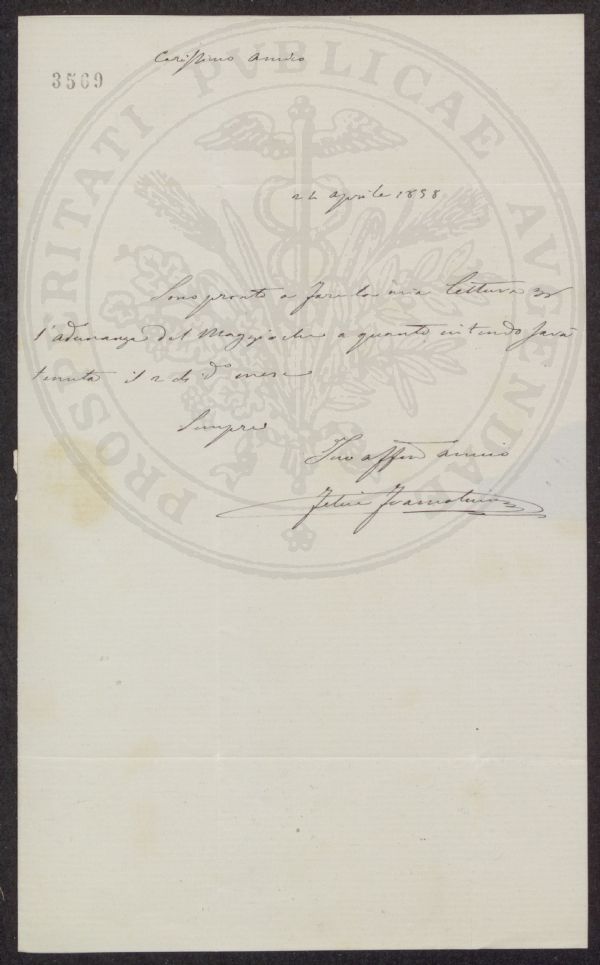 Carissimo Amico
3569
PROSPERITATI PVBLICAE AVGENDAE
24 Aprile 1858
Sono pronto a fare la mia lettura
l'adunanza del Maggio che a quanto intendo sarà
tenuta il 2 di do mese
Sempre
Suo affmo amico
Felice